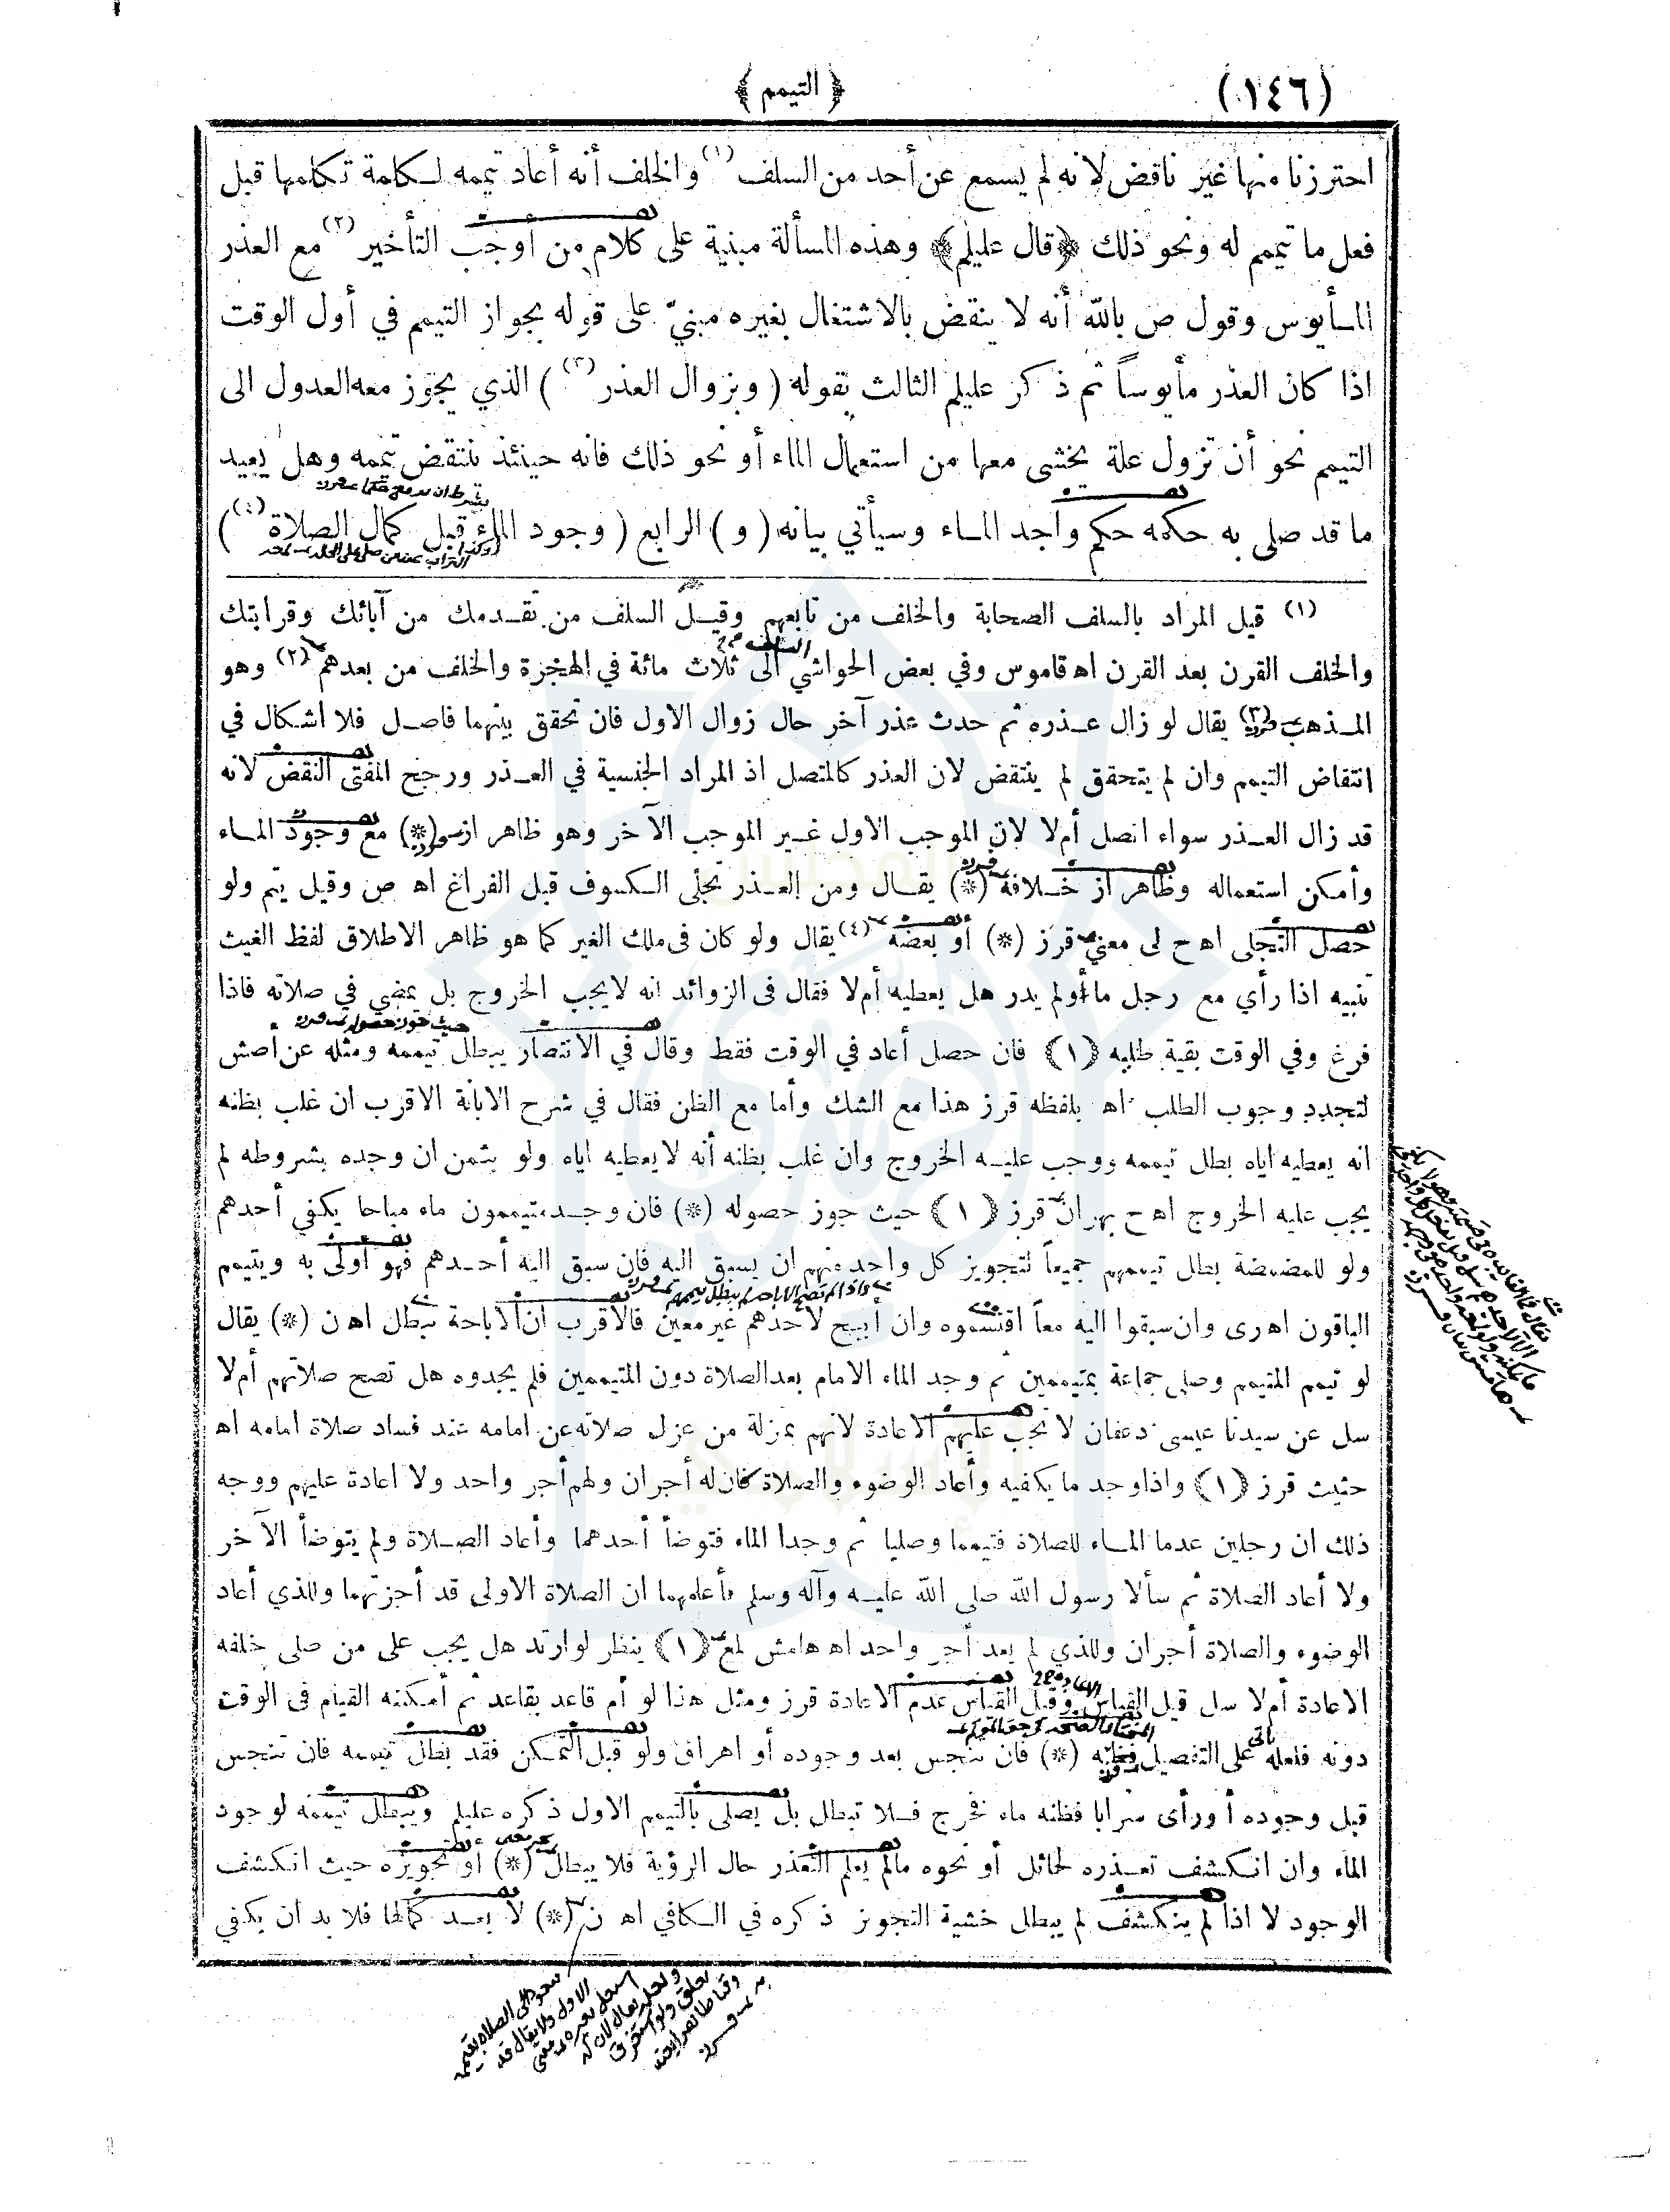 (١٤٦)
﴿ التيمم ﴾
احترزنا منها غير ناقض لانه لم يسمع عن أحد من السلف (١) والخلف أنه أعاد تيممه لكلمة تكلمها قبل
فعل ما تيمم له ونحو ذلك ﴿قال عليلم﴾ وهذه المسألة مبنية على كلام من أوجب التأخير (٢) مع العذر
المأيوس وقول ص بالله أنه لا ينقض بالاشتغال بغيره مبنيّ على قوله بجواز التيمم في أول الوقت
اذا كان العذر مأيوساً ثم ذكر عليلم الثالث بقوله ( وبزوال العذر (٣) ) الذي يجوز معه العدول الى
التيمم نحو أن تزول علة يخشى معها من استعمال الماء أو نحو ذلك فانه حينئذ ينتقض تيممه وهل يعيد
ما قد صلى به حكمه حكم واجد الماء وسيأتي بيانه ( و ) الرابع ( وجود الماء قبل كمال الصلاة (٤) )
(١) قيل المراد بالسلف الصحابة والخلف من تابعهم وقيل السلف من تقدمك من آبائك وقرابتك
والخلف القرن بعد القرن اه قاموس وفي بعض الحواشي الى ثلاث مائة في الهجرة والخلف من بعدهم (٢) وهو
المذهب (٣) يقال لو زال عذره ثم حدث عذر آخر حال زوال الاول فان تحقق بينهما فاصل فلا اشكال في
انتقاض التيمم وان لم يتحقق لم ينتقض لان العذر كالمتصل اذ المراد الجنسية في العذر ورجح المفتى النقض لانه
قد زال العذر سواء اتصل أم لا لان الموجب الاول غير الموجب الآخر وهو ظاهر از (*) مع وجود الماء
وأمكن استعماله وظاهر از خلافه (*) يقال ومن العذر تجلى الكسوف قبل الفراغ اه ص وقيل يتم ولو
حصل التجلى اه ح لى معنى قرز (*) أو بعضه (٤) يقال ولو كان فى ملك الغير كما هو ظاهر الاطلاق لفظ الغيث
تنبيه اذا رأي مع رجل ماء ولم يدر هل يعطيه أم لا فقال فى الزوائد انه لا يجب الخروج بل يمضي في صلاته فاذا
فرغ وفي الوقت بقية طلبه (١) فان حصل أعاد في الوقت فقط وقال في الانتصار يبطل تيممه ومثله عن اصش
لتجدد وجوب الطلب اه بلفظه قرز هذا مع الشك وأما مع الظن فقال في شرح الابانة الاقرب ان غلب بظنه
انه يعطيه اياه بطل تيممه ووجب عليه الخروج وان غلب بظنه أنه لا يعطيه اياه ولو بثمن ان وجده بشروطه لم
يجب عليه الخروج اه ح بهران قرز (١) حيث جوز حصوله (*) فان وجد متيممون ماء مباحا يكفي أحدهم
ولو للمضمضة بطل تيممهم جميعاً لتجويز كل واحد منهم ان يسبق اليه فان سبق اليه أحدهم فهو أولى به ويتيمم
الباقون اه رى وان سبقوا اليه معاً اقتسموه وان أبيح لأحدهم غير معين فالأقرب ان الاباحة تبطل اه ن (*) يقال
لو تيمم المتيمم وصلى جماعة بمتيممين ثم وجد الماء الامام بعد الصلاة دون المتيممين فلم يجدوه هل تصح صلاتهم أم لا
سل عن سيدنا عيسى دعفان لا تجب عليهم الاعادة لانهم بمنزلة من عزل صلاته عن امامه عند فساد صلاة امامه اه
حثيث قرز (١) واذا وجد ما يكفيه وأعاد الوضوء والصلاة كان له أجران ولهم أجر واحد ولا اعادة عليهم ووجه
ذلك ان رجلين عدما الماء للصلاة فتيمما وصليا ثم وجدا الماء فتوضأ أحدهما وأعاد الصلاة ولم يتوضأ الآخر
ولا أعاد الصلاة ثم سألا رسول الله صلى الله عليه وآله وسلم فأعلمهما ان الصلاة الاولى قد أجزتهما وللذي أعاد
الوضوء والصلاة أجران وللذي لم يعد أجر واحد اه هامش لمع (١) ينظر لو ارتد هل يجب على من صلى خلفه
الاعادة أم لا سل قيل القياس وقيل القياس عدم الاعادة قرز ومثل هذا لو أم قاعد بقاعد ثم أمكنه القيام فى الوقت
دونه فلعله على التفصيل (*) فان تنجس بعد وجوده أو اهراق ولو قبل التمكن فقد بطل تيممه فان تنجس
قبل وجوده أو رأى سرابا فظنه ماء فخرج فلا تبطل بل يصلى بالتيمم الاول ذكره عليلم ويبطل تيممه لوجود
الماء وان انكشف تعذره لحائل أو نحوه مالم يعلم التعذر حال الرؤية فلا يبطل (*) أو تجويزه حيث انكشف
الوجود لا اذا لم ينكشف لم يبطل خشية التجويز ذكره في الكافي اه ن (*) لا بعد كمالها فلا بد ان يكفي